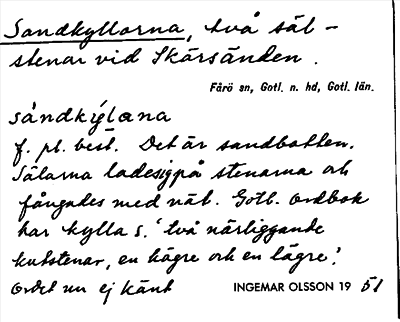 Sandkyllorna, två säl-
stenar vid Skärsänden.
Fårö sn, Gotl. n. hd, Gotl. län.
sándkýlæna
f. pl. best. Det är sandbotten.
Sälarna lade sig på stenarna och
fångades med nät. Gotl. ordbok
har kylla s. ‘två närliggande
kutstenar, en högre och en lägre’.
Ordet nu ej känt
INGEMAR OLSSON 1951